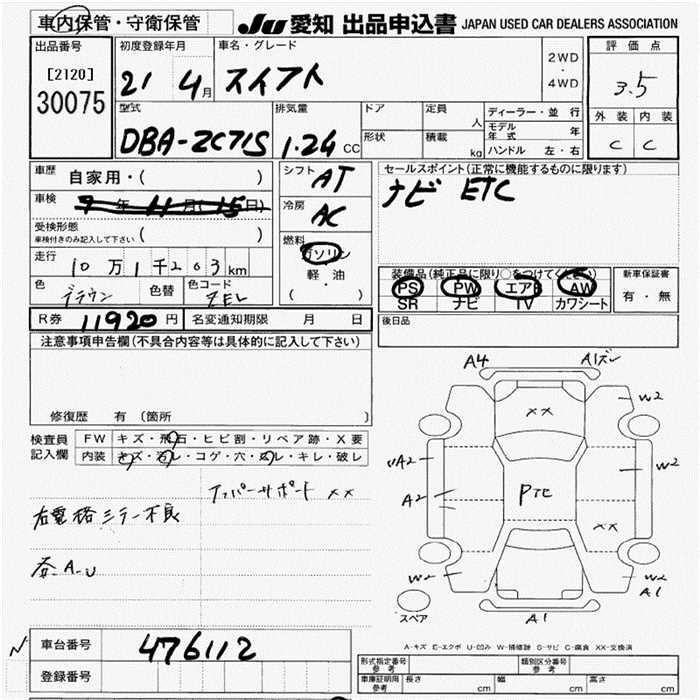 車内保管・守衛保管 JU 愛知 出品申込書 JAPAN USED CAR DEALERS ASSOCIATION
出品番号 初度登録年月 車名・グレード 評価点
[2120] 21 4月 スイフト 2WD・4WD 3.5
30075
型式 排気量 ドア 定員 人 ディーラー・並行 外装 内装
DBA-ZC71S 1.24 CC 形状 積載 kg モデル年式 年 C C
ハンドル 左・右
車歴 自家用・( ) シフト AT セールスポイント(正常に機能するものに限ります)
車検 9年11月(15日) 冷房 AC ナビ ETC
受検形態 ( )
車検付きのみ記入して下さい
燃料 ガソリン
走行 10万1千203km 軽油 装備品(純正品に限り○をつけてください) 新車保証書
色 ブラウン 色替 色コード ZEL ( ・ ) PS PW エアB AW 有・無
SR ナビ TV カワシート
R券 11920円 名変通知期限 月 日 後日品
注意事項申告欄(不具合内容等は具体的に記入して下さい)
A4 A1ズレ
W2
XX
修復歴 有(箇所
検査員記入欄 FW キズ・飛石・ヒビ割・リペア跡・X要
内装 キズ・汚レ・コゲ・穴・スレ・キレ・破レ
UA2 W2
アッパーサポート XX
A2 PTC
右電格ミラー不良
XX
W2 W2
A1
スペア A1
A-キズ E-エクボ U-凹み W-補修跡 S-サビ C-腐食 XX-交換済
車台番号 476112
型式指定番号 参考 類別区分番号 参考
登録番号 車庫証明用 参考 長さ cm 幅 cm 高さ cm